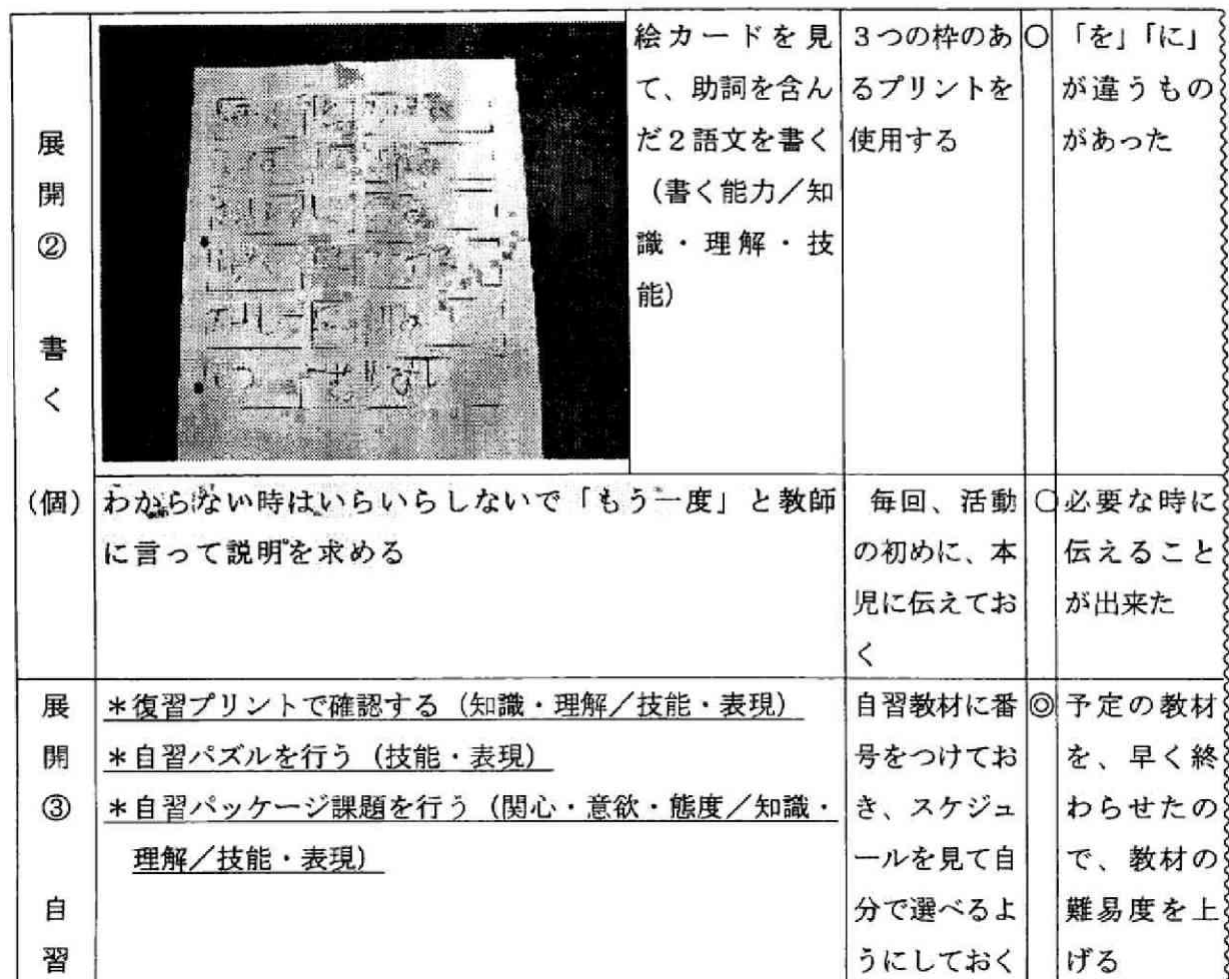 展
開
②
書
く
絵カードを見
て、助詞を含ん
だ2語文を書く
（書く能力／知
識・理解・技
能）
3つの枠のあ
るプリントを
使用する
○
「を」「に」
が違うもの
があった
(個)
わからない時はいらいらしないで「もう一度」と教師
に言って説明を求める
毎回、活動
の初めに、本
児に伝えてお
く
○
必要な時に
伝えること
が出来た
展
開
③
自
習
＊復習プリントで確認する（知識・理解／技能・表現）
＊自習パズルを行う（技能・表現）
＊自習パッケージ課題を行う（関心・意欲・態度／知識・
理解／技能・表現）
自習教材に番
号をつけてお
き、スケジュ
ールを見て自
分で選べるよ
うにしておく
◎
予定の教材
を、早く終
わらせたの
で、教材の
難易度を上
げる